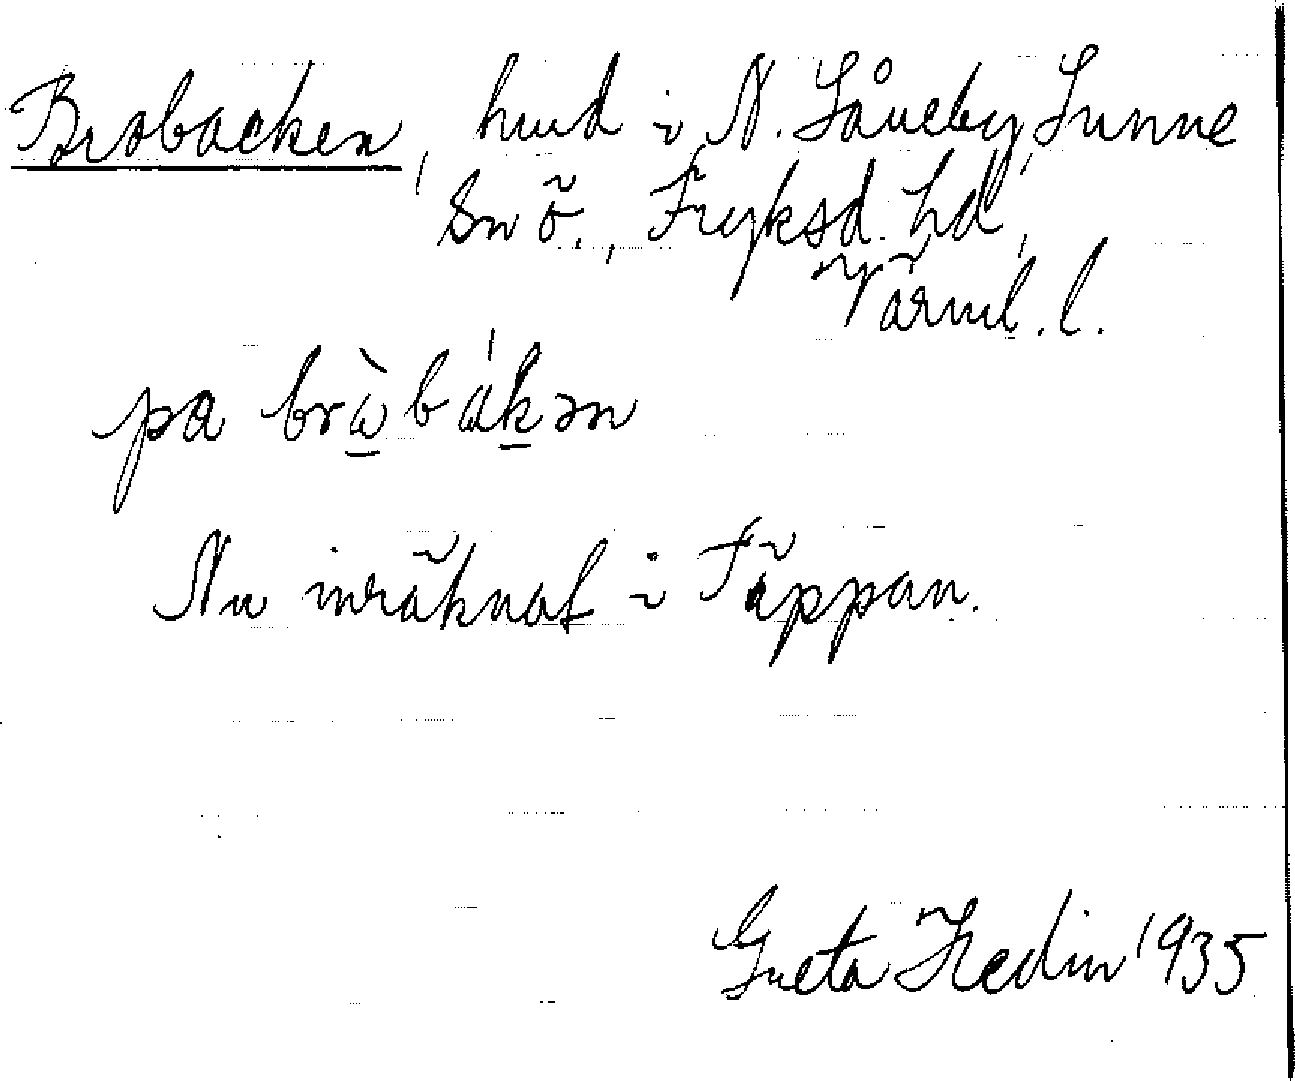 Brobacken, hmd i N. Såneby, Sunne
sn ö., Fryksd. hd,
Värml. l.
pa brὼbákən
Nu inräknat i Täppan.
Greta Hedin 1935